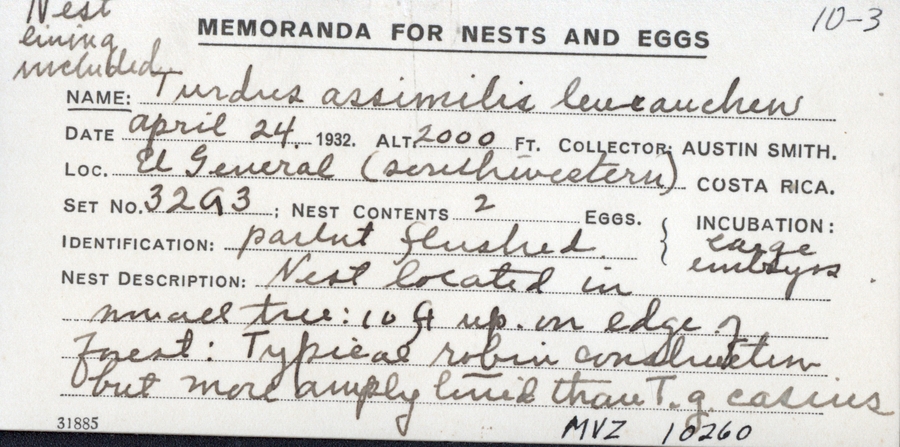 Nest
lining
included
10-3
MEMORANDA FOR NESTS AND EGGS
NAME: Turdus assimilis leucauchen
DATE april 24. 1932. ALT. 2000 FT. COLLECTOR: AUSTIN SMITH.
LOC. El General (southwestern) COSTA RICA.
SET NO. 32G3 ; NEST CONTENTS 2 EGGS. { INCUBATION:
IDENTIFICATION: parent flushed. large
embryos
NEST DESCRIPTION: Nest located in
small tree: 10 ft up. on edge of
forest: Typical robin construction
but more amply lined than T. g. casius
31885
MVZ 10260